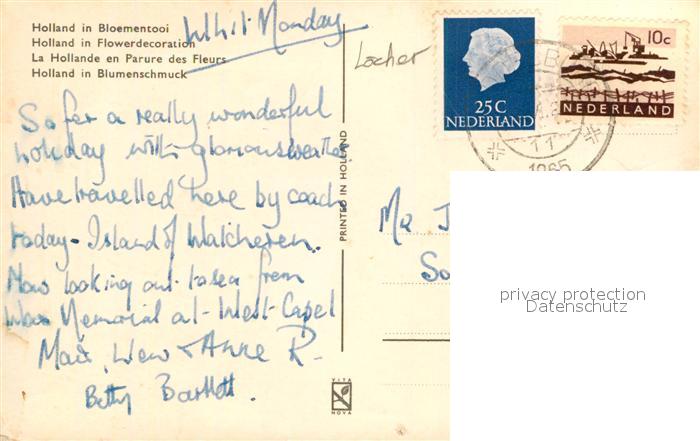 Holland in Bloementooi
Holland in Flowerdecoration
La Hollande en Parure des Fleurs
Holland in Blumenschmuck
Whit Monday
Locher
So far a really wonderful
holiday with glorious weather
Have travelled here by coach
today - Island of Walcheren.
Now looking out to sea from
War Memorial at West Capel
Betty Bartlett.
PRINTED IN HOLLAND
VITA
NOVA
25C
NEDERLAND
10c
NEDERLAND
11
1965
Mr J
So
privacy protection
Datenschutz